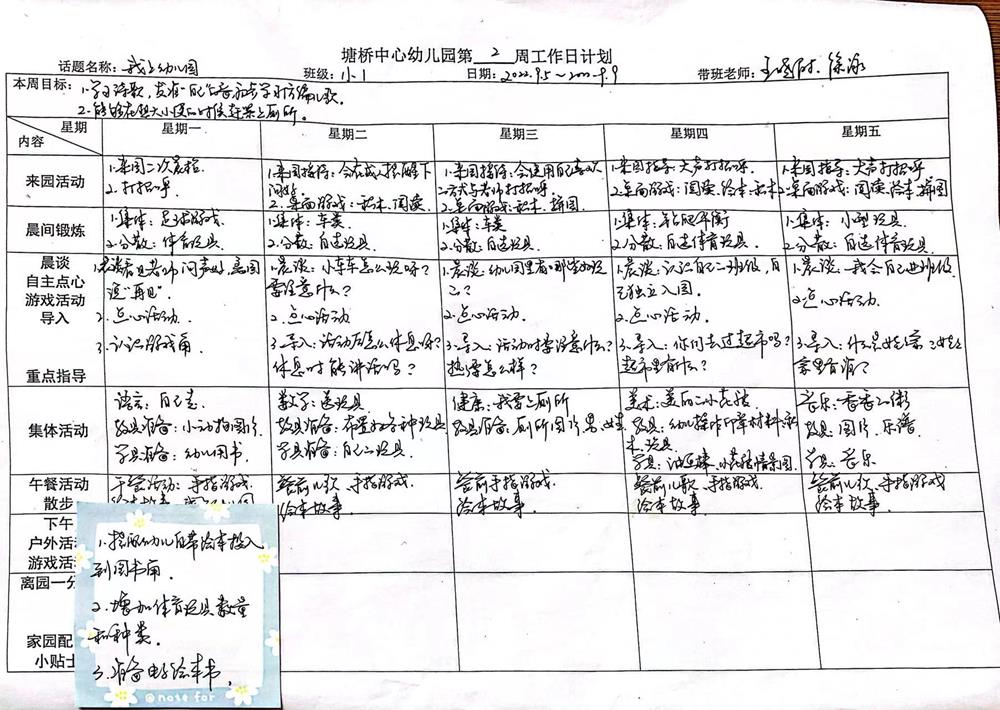 塘桥中心幼儿园第 2 周工作日计划
话题名称：我上幼儿园 班级：小1 日期：2022.9.5~2022.9.9 带班老师：
本周目标：1.学习诗歌，
2.能够在想大小便的时候
内容 星期 星期一 星期二 星期三 星期四 星期五
来园活动
1.来园二次晨检
2.打招呼.
1.来园接待：
问好
2.桌面游戏：积木、阅读.
1.来园接待：会使用自己喜欢
方式与老师打招呼
2.桌面游戏：积木、拼图
1.来园指导：大声打招呼.
2.桌面游戏：阅读、绘本、积木
1.来园指导：大声打招呼
2.桌面游戏：阅读、绘本、拼图
晨间锻炼
1.集体：足球游戏
2.分散：体育玩具.
1.集体：车类
2.分散：自选玩具.
1.集体：车类
2.分散：自选玩具.
1.集体：平衡
2.分散：自选体育玩具.
1.集体：小型玩具
2.分散：自选体育玩具.
晨谈
自主点心
游戏活动
导入
重点指导
老师问声好，离园
说“再见”.
2.点心活动.
3.认识游戏角
1.晨谈：小车车怎么玩呀？
要注意什么？
2.点心活动
3.导入：活动后怎么休息呀？
休息时能讲话吗？
1.晨谈：幼儿园里有哪些好玩
2.点心活动.
3.导入：活动时要注意什么？
热了怎么样？
1.晨谈：认识自己的班级，自
己独立入园.
2.点心活动.
3.导入：你们去过超市吗？
超市里有什么？
1.晨谈：我会自己进班级.
2.点心活动
3.导入：什么是娃娃家？娃娃
家里有谁？
集体活动
语言：自己走
教具准备：小动物图片
学具准备：幼儿用书
数学：送玩具
教具准备：布置好各种玩具
学具准备：自己玩具.
健康：我要上厕所
教具准备：厕所图片
美术：美丽的小花猫
教具：幼儿操作印章材料
音乐：
教具：图片、乐谱
学具：音乐
午餐活动
散步
午餐活动：手指游戏
餐前儿歌、手指游戏.
绘本故事.
餐前手指游戏.
绘本故事.
餐前儿歌、手指游戏.
绘本故事
餐前儿歌、手指游戏
绘本故事.
下午
户外活
游戏活
离园一分
家园配
小贴士
1.提醒幼儿自带绘本投入
到图书角.
2.增加体育玩具数量
和种类.
3.准备电子绘本书.
@nose for